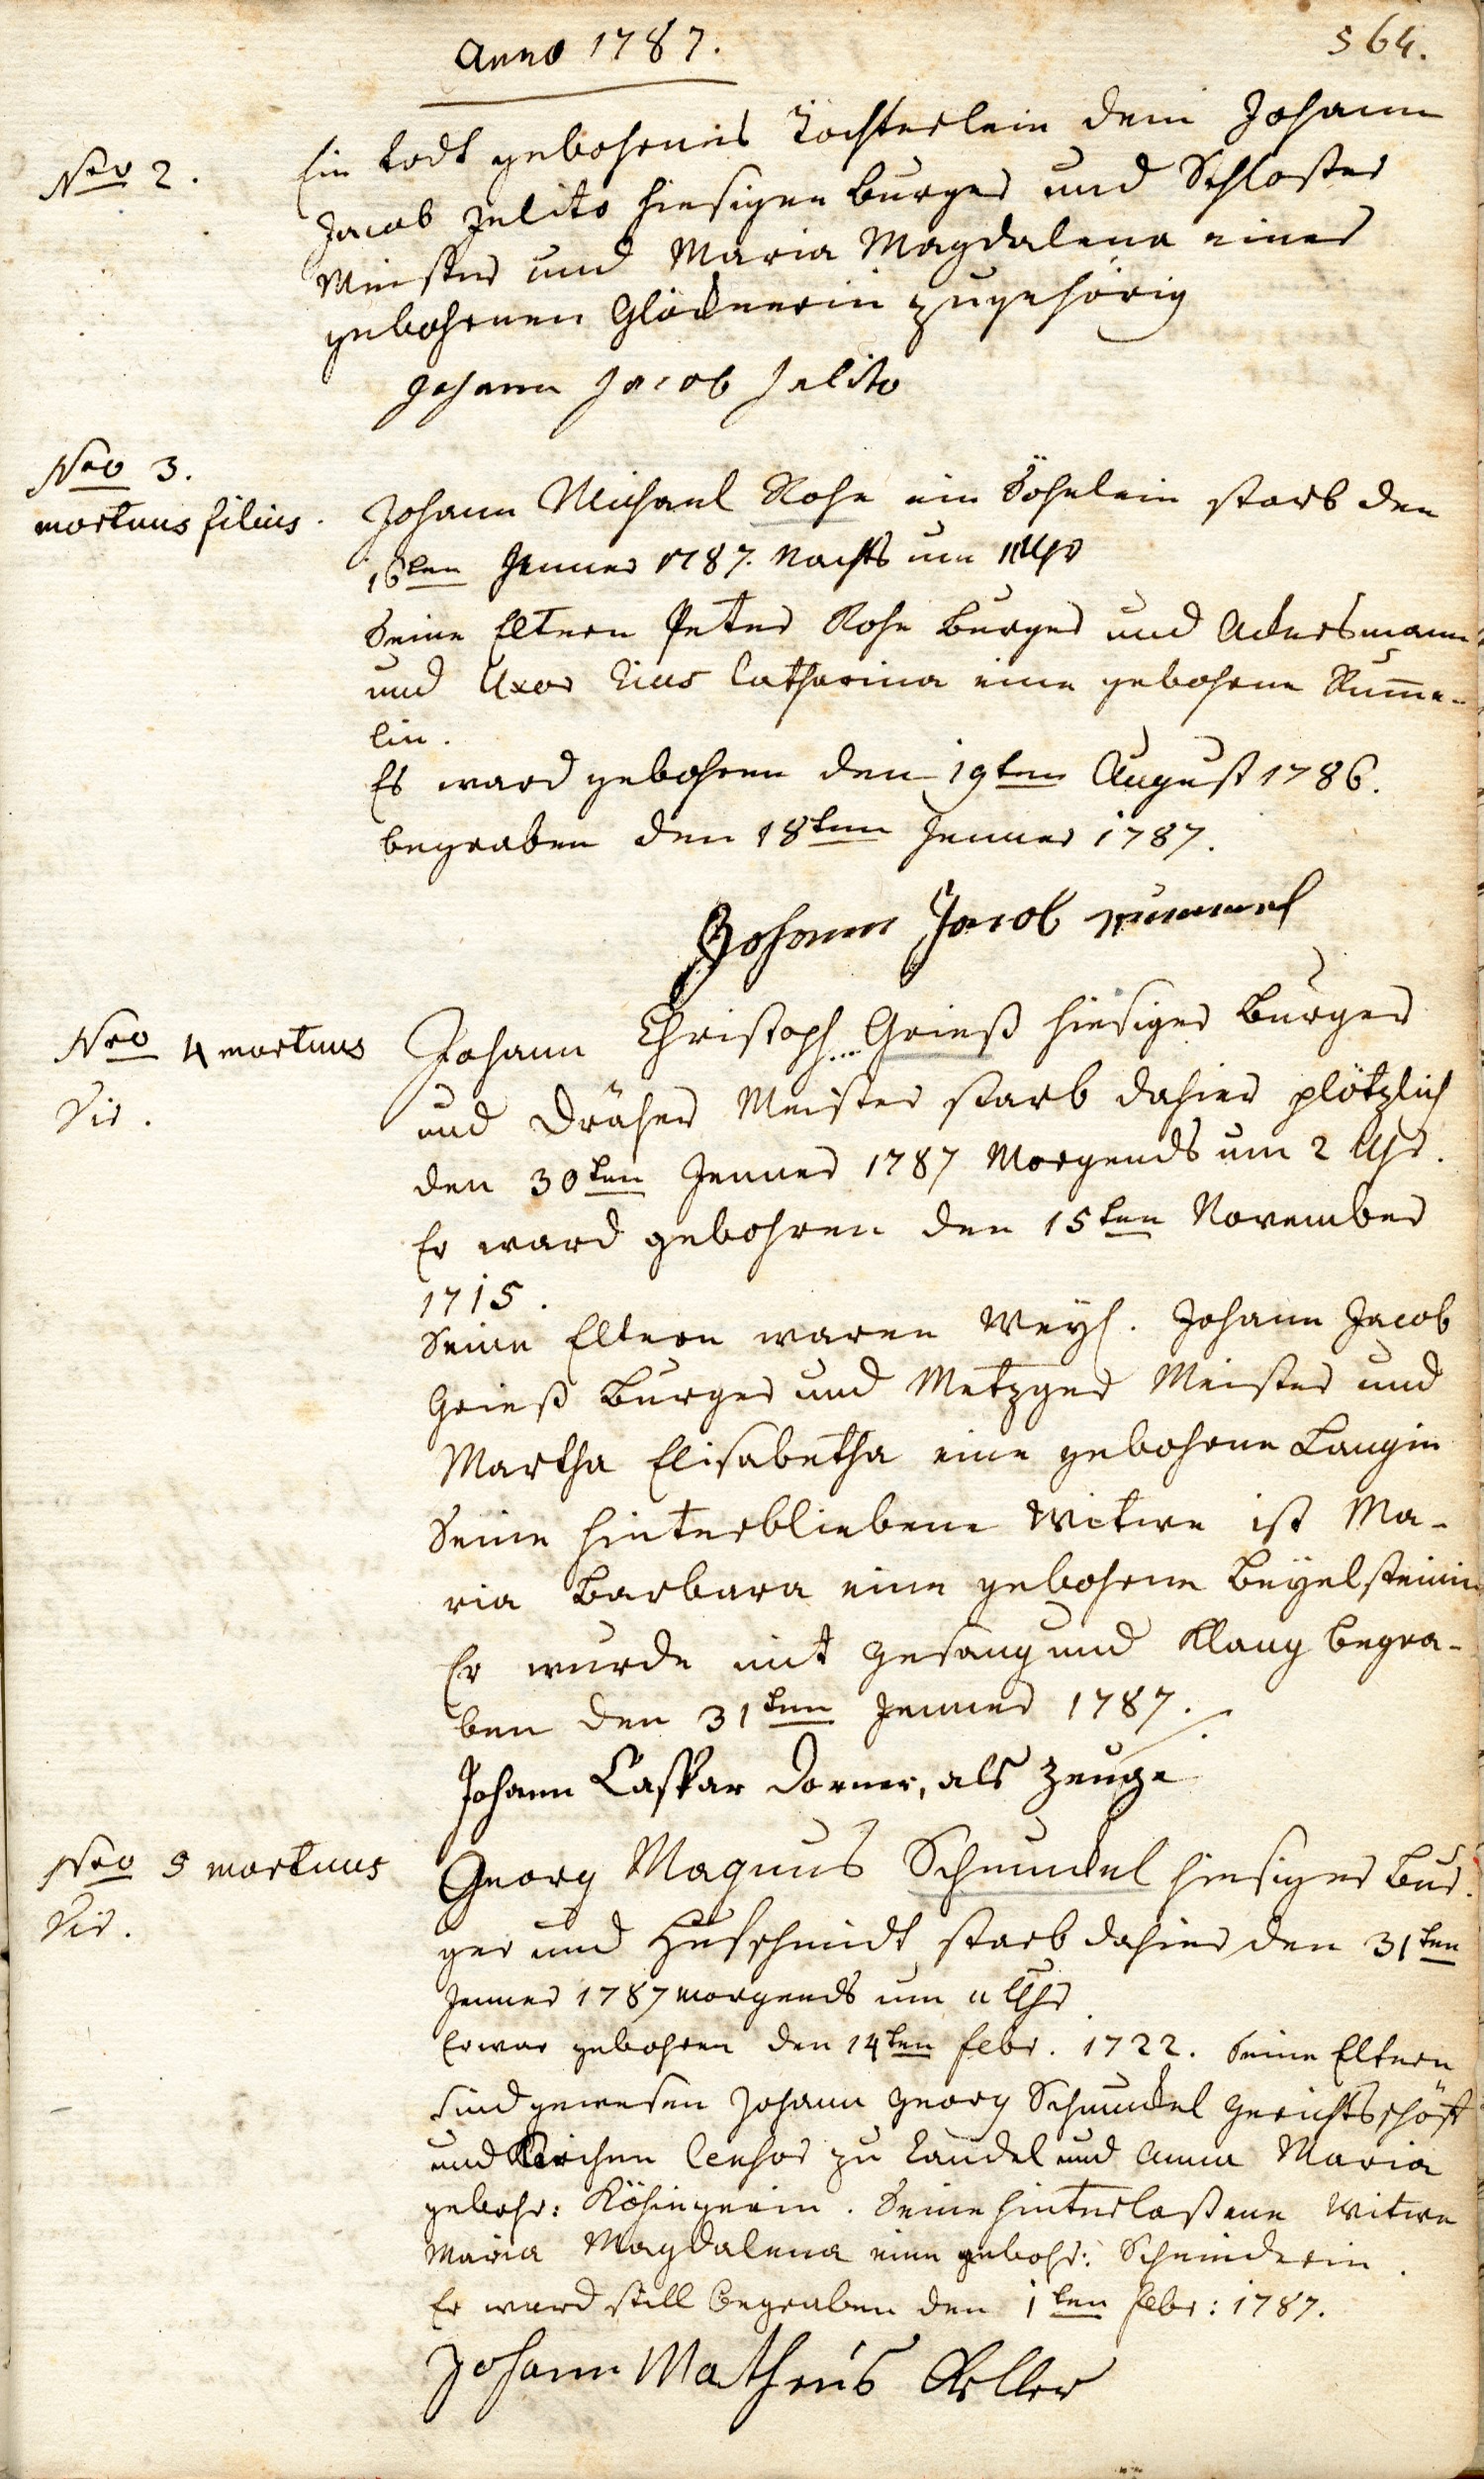 Anno 1787.
564.
Nro 2.
Ein todt gebohrnes Töchterlein dem Johann
Jacob Jelito hiesigen burger und Schlosser
Meister und Maria Magdalena einer
gebohrnen Glöcknerin zugehörig
Johann Jacob Jelito
Nro 3.
mortuus filius.
Johann Michael Rohe ein Söhnlein starb den
16ten Jenner 1787. Nachts um 11 Uhr
Seine Eltern Peter Rohe burger und Ackersmann
und Uxor Eius Catharina eine gebohrne Rum̄e-
lin.
Es ward gebohren den 19ten August 1786.
begraben den 18ten Jenner 1787.
Johann Jacob Rummel
Nro 4 mortuus
Vir.
Johann Christoph Grieß hiesiger burger
und Dräher Meister starb dahier plötzlich
den 30ten Jenner 1787 Morgends um 2 Uhr.
Er ward gebohren den 15ten November
1715.
Seine Eltern waren Weyl. Johann Jacob
Grieß burger und Metzger Meister und
Martha Elisabetha eine gebohrne Langin
Seine hinterbliebene Witwe ist Ma-
ria Barbara eine gebohrne Beyelsteinin
Er wurde mit gesang und Klang begra-
ben den 31ten Jenner 1787.
Johann Caspar Dorner, als Zeuge
Nro 5 mortuus
Vir.
Georg Magnus Schunckel hiesiger bur-
ger und Hufschmidt starb dahier den 31ten
Jenner 1787 morgends um 11 Uhr
Er war gebohren den 14ten febr. 1722. Seine Eltern
sind gewesen Johann Georg Schunckel Gerichtsschöff
und Kirchen Censor zu Candel und Anna Maria
gebohr: Seine hinterlaßene Witwe
Maria Magdalena eine gebohr: Schmidtin.
Er ward still begraben den 1ten febr: 1787.
Johann Matheus Keller